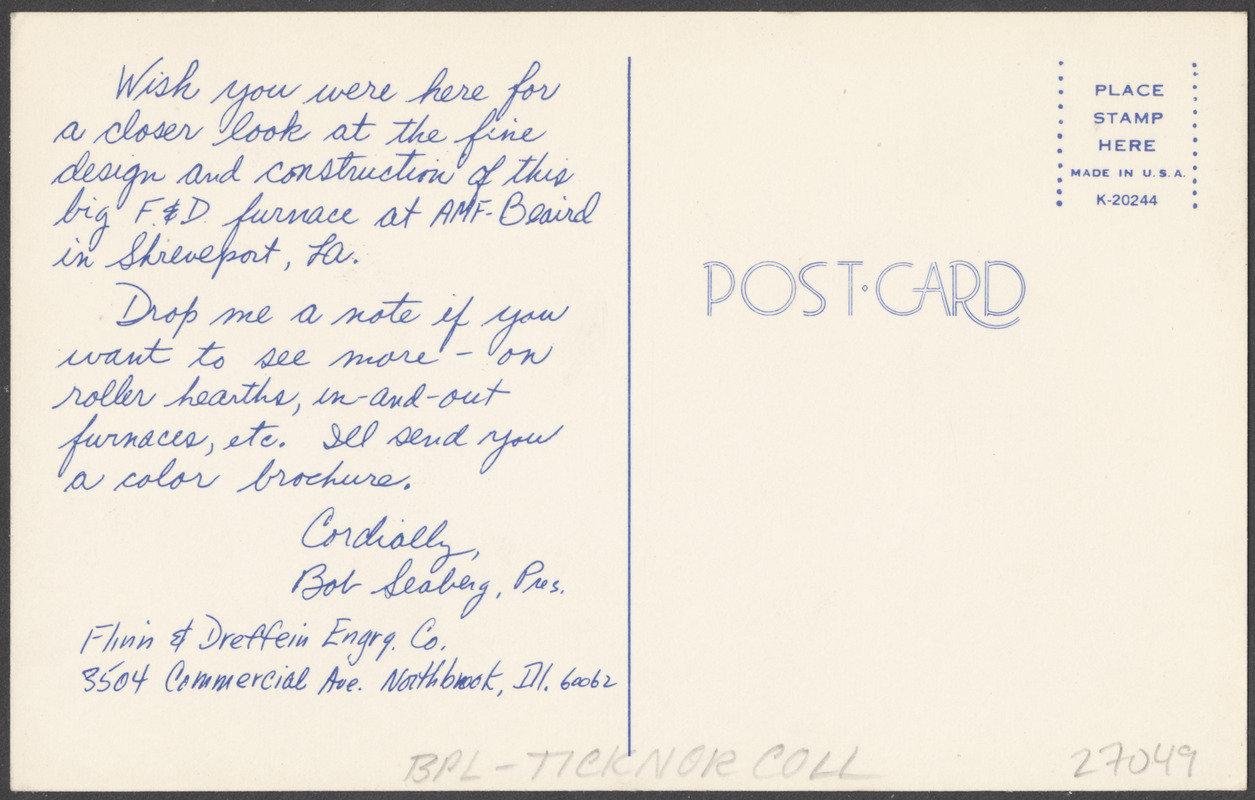 Wish you were here for
a closer look at the fine
design and construction of this
big F.&D. furnace at AMF-Beaird
in Shreveport, La.
Drop me a note if you
want to see more - on
roller hearths, in-and-out
furnaces, etc. I'll send you
a color brochure.
Cordially,
Bob Seaberg, Pres.
Flinn & Dreffein Engrg. Co.
3504 Commercial Ave. Northbrook, Ill. 60062
PLACE
STAMP
HERE
MADE IN U.S.A.
K-20244
POST·CARD
BPL - TICKNOR COLL
27049